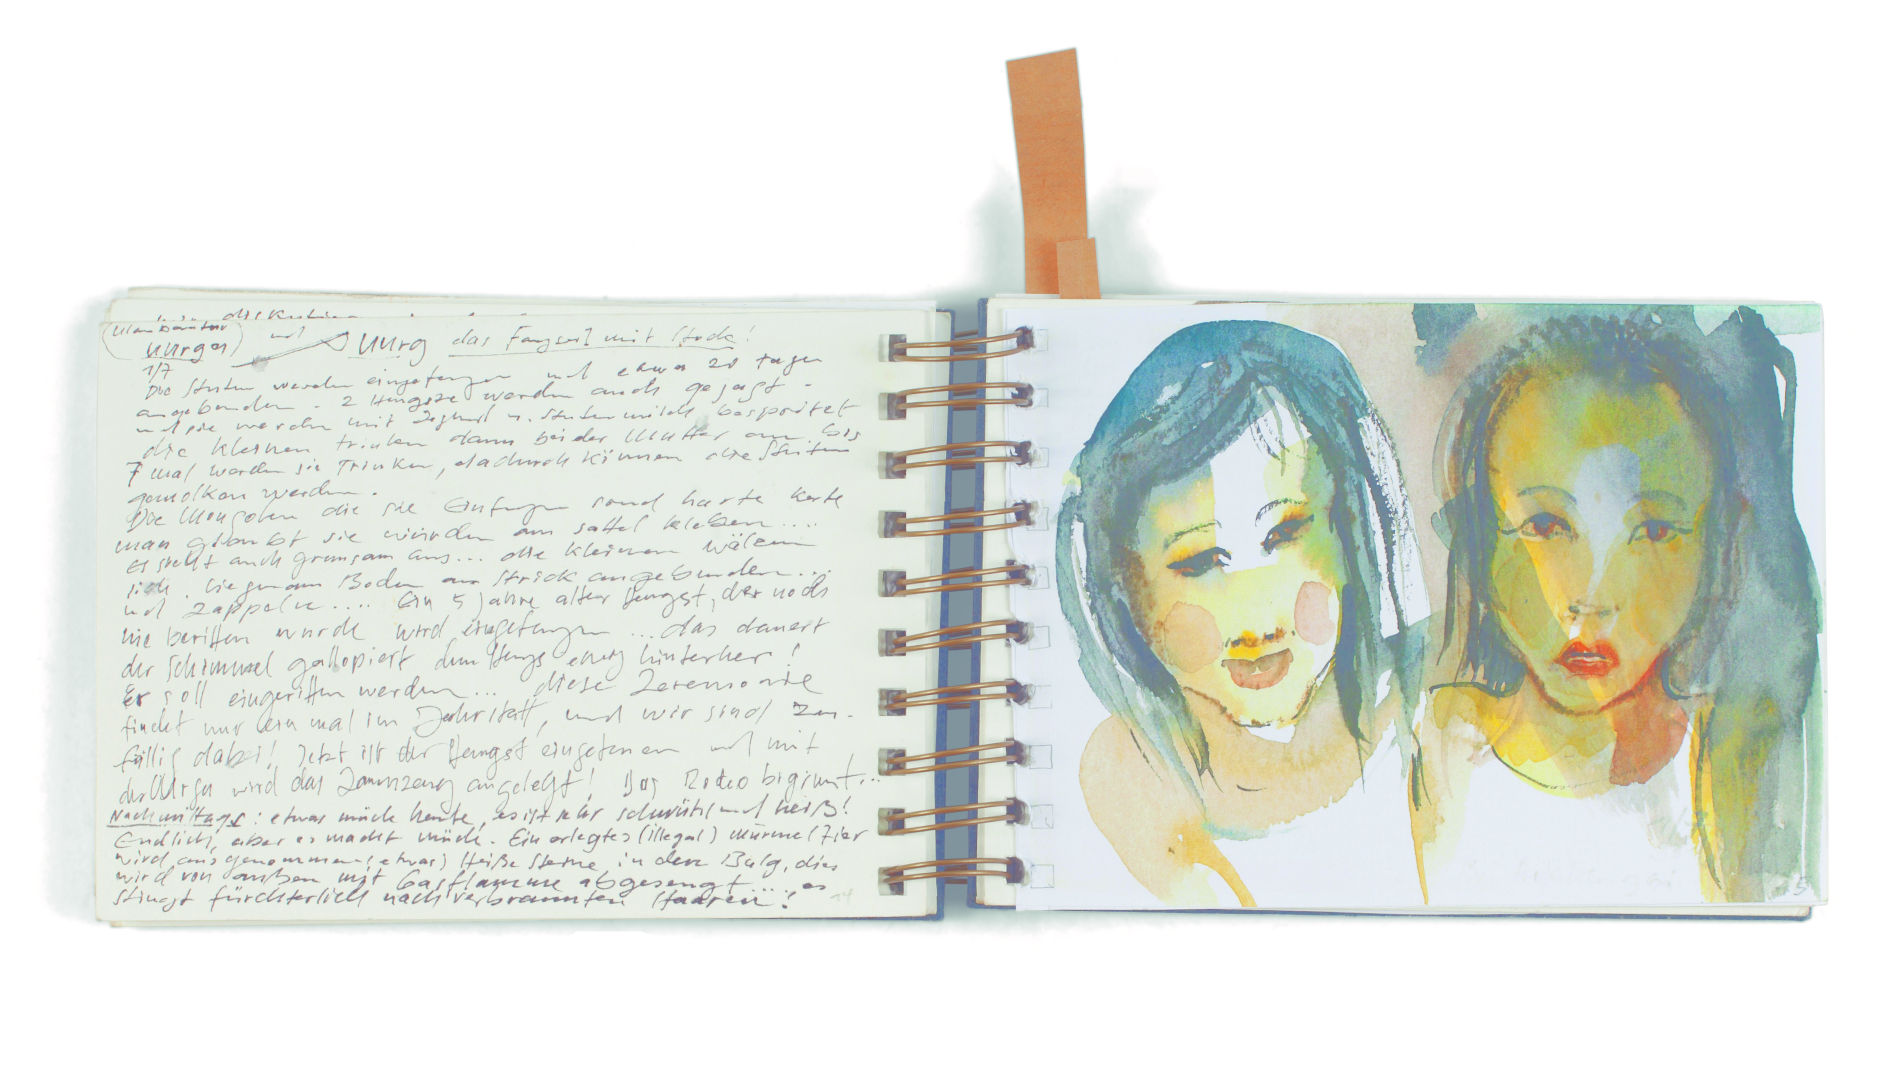 uurga) und → uurg das Fangseil mit Stock!
1/7
Die Stuten werden eingefangen und etwa 20 Tage
angebunden. 2 Hengste werden auch gejagt -
und sie werden mit Joghurt u. Stutenmilch bespritzt
die kleinen trinken dann bei der Mutter an bis
7 mal werden sie Trinken, dadurch können die Stuten
gemolken werden.
Die Mongolen die sie Einfangen sind harte Kerle
man glaubt sie würden am Sattel kleben....
es sieht auch grausam aus... die kleinen wälzen
sich. liegen am Boden am Strick angebunden...
und zappeln.... Ein 5 Jahre alter Hengst, der noch
nie beritten wurde wird eingefangen ...das dauert
der Schimmel gallopiert dem Hengst ewig hinterher!
Er soll eingeritten werden... diese Zeremonie
findet nur ein mal im Jahr statt, und wir sind zu-
fällig dabei! Jetzt ist der Hengst eingefangen und mit
der Urga wird das Zaumzeug angelegt! Das Rodeo beginnt...
Nachmittags: etwas müde heute, es ist sehr schwül und heiß!
Endlich, aber es macht müde. Ein erlegtes (illegal) Murmeltier
wird ausgenommen (etwas) Heiße Steine in den Balg, dies
wird von außen mit Gasflamme abgesengt....es
stinkt fürchterlich nach verbrannten Haaren!
5